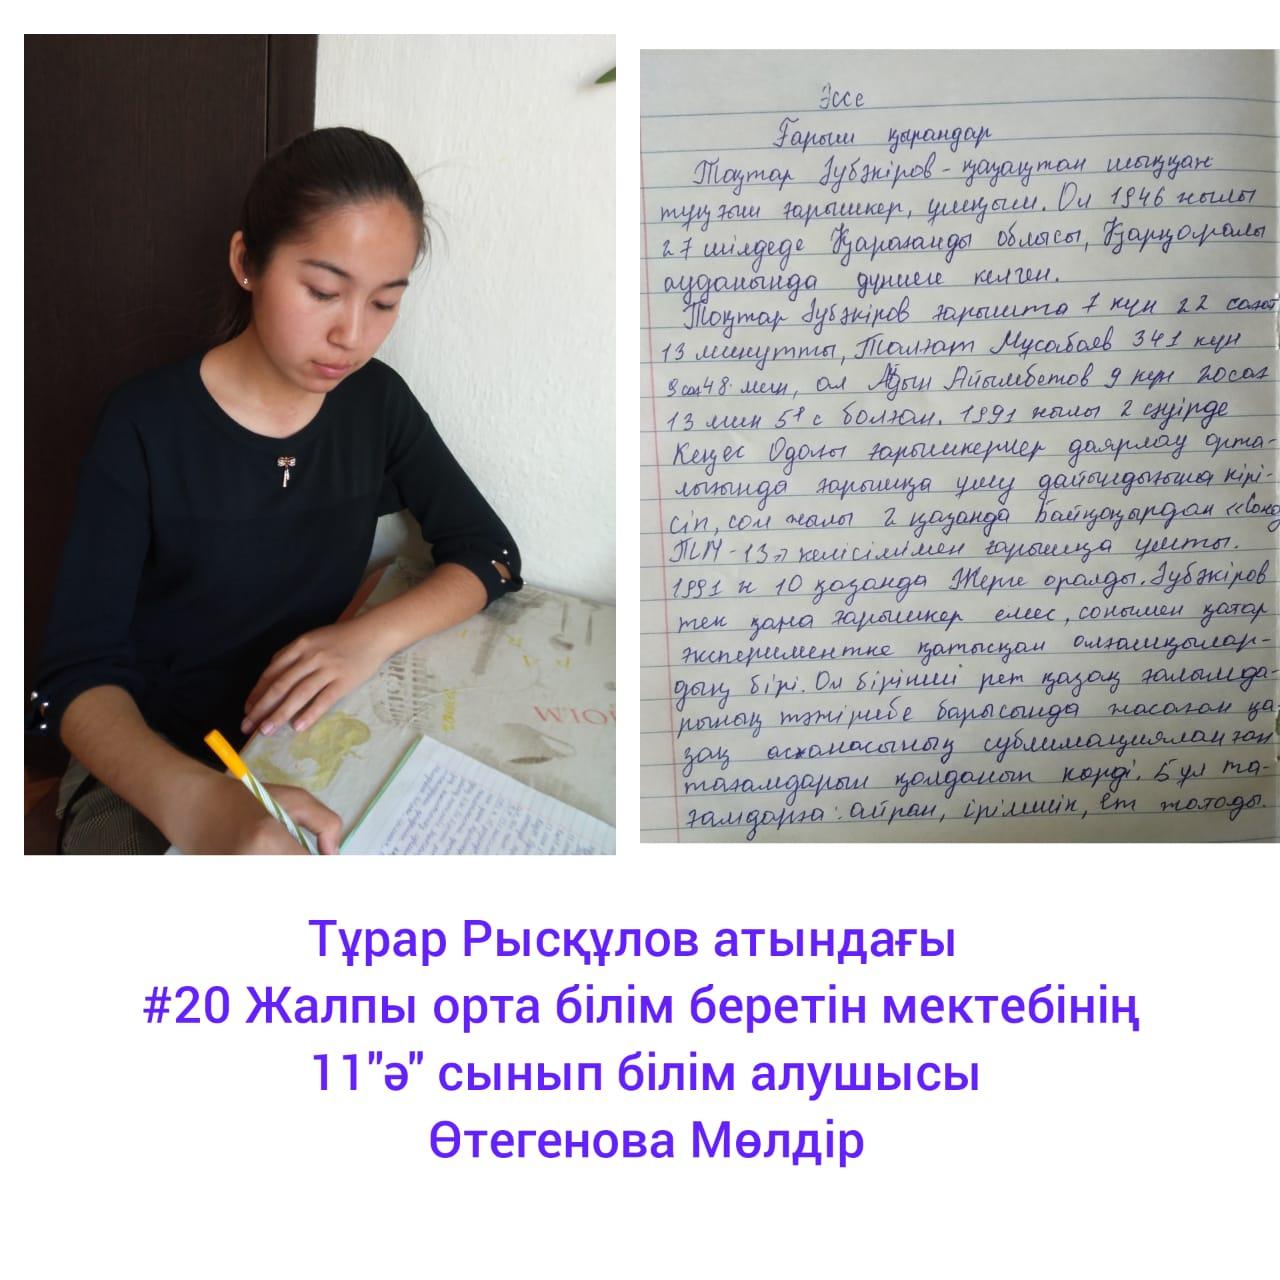 Эссе
Ғарыш қырандар
Тоқтар Әубәкіров - қазақтан шыққан
тұңғыш ғарышкер, ұшқыш. Ол 1946 жылы
27 шілдеде Қарағанды облысы, Қарқаралы
ауданында дүниеге келген.
Тоқтар Әубәкіров ғарышта 7 күн 22 сағат
13 минутты, Талғат Мұсабаев 341 күн
9 сағ 48 мин, ал Айдын Айымбетов 9 күн 20 сағ
13 мин 51 с болған. 1991 жылы 2 сәуірде
Кеңес Одағы ғарышкерлер даярлау орта-
лығында ғарышқа ұшу дайындығына кірі-
сіп, сол жылы 2 қазанда Байқоңырдан «Союз
ТМ-13» келісімімен ғарышқа ұшты.
1991 ж 10 қазанда Жерге оралды. Әубәкіров
тек қана ғарышкер емес, сонымен қатар
экспериментке қатысқан алғашқылар-
дың бірі. Ол бірінші рет қазақ ғалымда-
рының тәжірибе барысында жасаған қа-
зақ асханасының сублимацияланған
тағамдарын қолданып көрді. Бұл та-
ғамдарға: айран, ірімшік, ет жатады.
PAR
HOLM
Тұрар Рысқұлов атындағы
#20 Жалпы орта білім беретін мектебінің
11"ә" сынып білім алушысы
Өтегенова Мөлдір